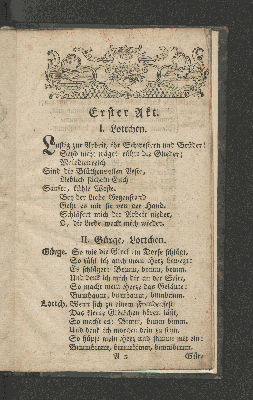 Erster Akt.
I. Lottchen.
Lustig zur Arbeit, ihr Schwestern und Brüder!
Seyd nicht träge! rührt die Glieder;
Melodienreich
Sind die Blüthenvollen Aeste,
Lieblich fächeln Euch
Sanfte, kühle Weste.
Bey der Liebe Gegenstand
Geht es mir frey von der Hand.
Schläfert mich die Arbeit nieder,
O, die Liebe weckt mich wieder.
II. Gürge, Lottchen.
Gürge. So wie die Glock im Dorfe schlägt,
So fühl ich auch mein Herz bewegt:
Es schläget: Bumm, bumm, bumm.
Und denk ich mich dir an der Seite,
So macht mein Herze das Geläute:
Bumbaum, bumbaum, bumbaum.
Lottch. Wenn sich zu einem Freudenfest
Das kleine Glöckchen hören läßt,
So macht es: Bimm, bimm, bimm.
Und denk ich mich dein zu seyn,
So hüpft mein Herz und stimmt mit ein:
Bimmbimm, bimmbimm, bimmbimm.
Gürg